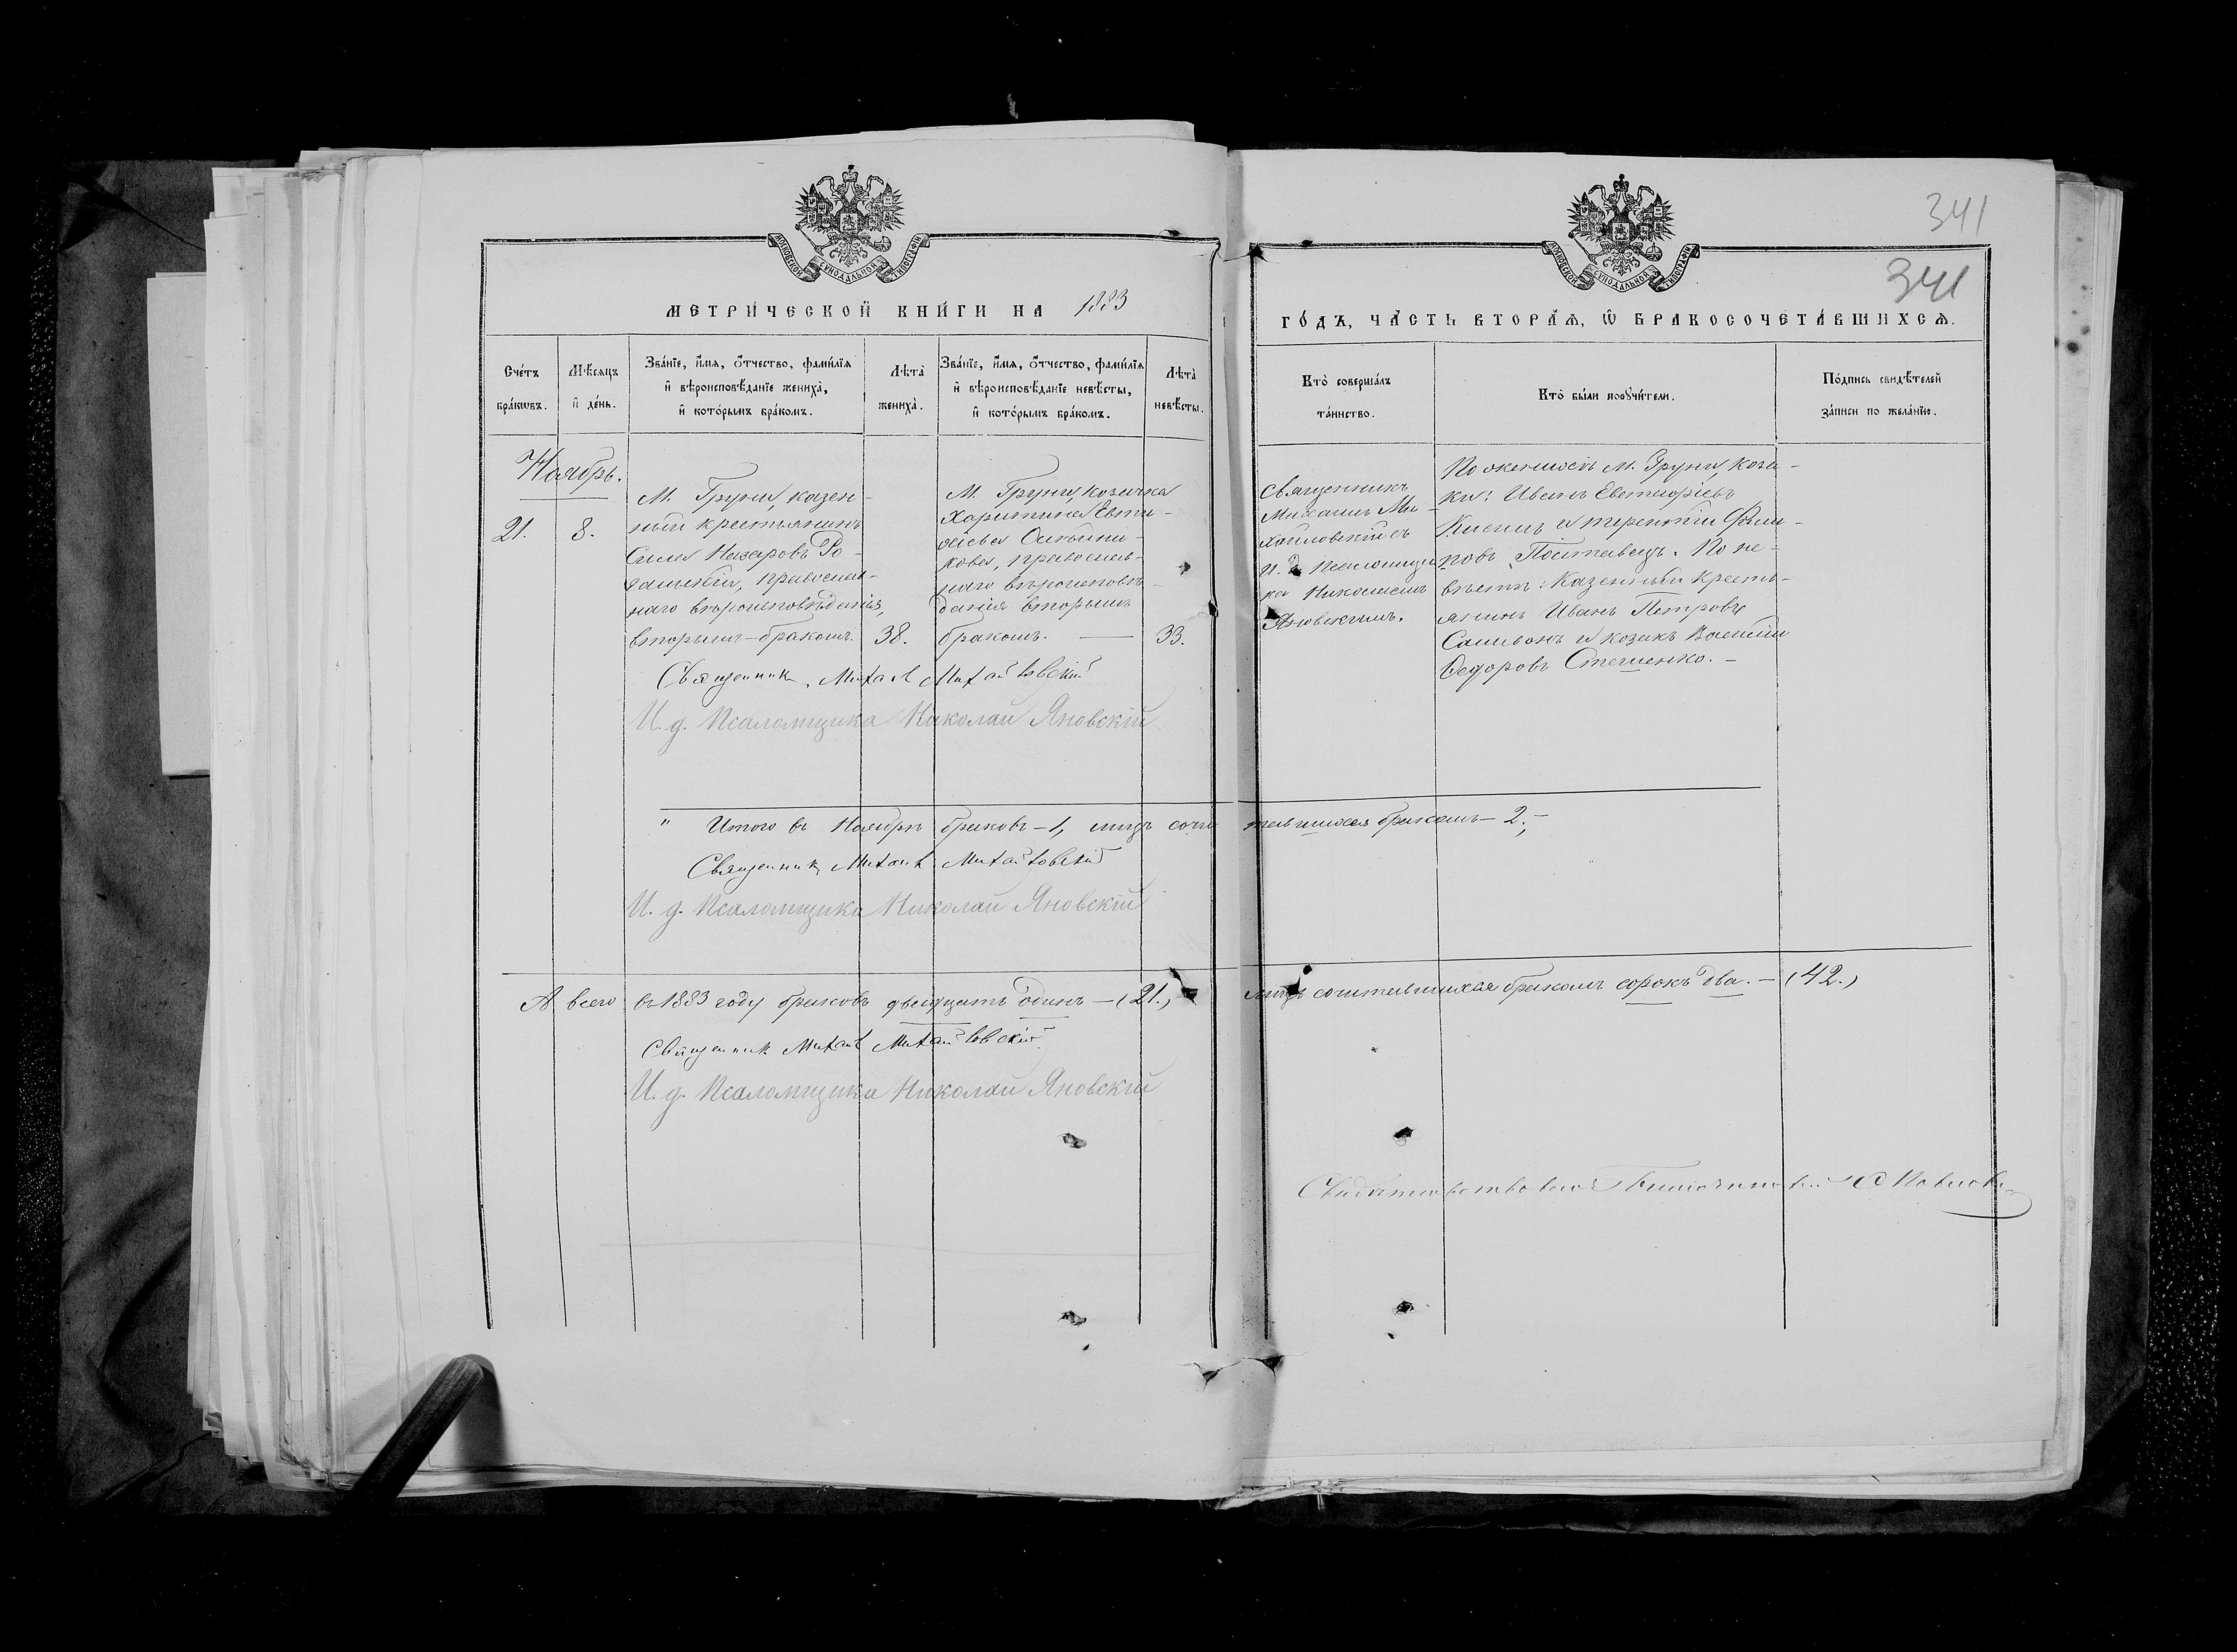 341
341
МОСКОВСКОЙ СѴНОДАЛЬНОЙ ТИПОГРАФІИ
МОСКОВСКОЙ СѴНОДАЛЬНОЙ ТИПОГРАФІИ
МЕТРИ́ЧЕСКОЙ КНИ́ГИ НА 1883
ГО́ДЪ, ЧА́СТЬ ВТОРА́Ѧ, Ѽ БРАКОСОЧЕТА́ВШИХСѦ.
Сче́тъ
бра́кѡвъ.
Мѣ́сяцъ
и҆ де́нь.
Зва́нїе, и҆́мя, ѻ҆́тчество, фами́лїя
и҆ вѣроисповѣ́данїе жениха̀,
и҆ кото́рымъ бра́комъ.
Лѣта̀
жениха̀.
Зва́нїе, и҆́мя, ѻ҆́тчество, фами́лїя
и҆ вѣроисповѣ́данїе невѣ́сты,
и҆ кото́рымъ бра́комъ.
Лѣта̀
невѣ́сты.
Кто̀ соверша́лъ
та́инство.
Кто̀ бы́ли порꙋчи́тели.
По́дпись свидѣ́телей
за́писи по жела́нїю.
Ноябрь.
21.
8.
М. Груни, казен-
ный крестьянинъ
Сила Назаровъ Ро-
менскій, православ-
наго вѣроисповѣданія,
вторымъ-бракомъ.
38.
М. Груни, козачка
Харитина Евти-
хіева
кова, православ-
наго вѣроисповѣ-
данія вторымъ
бракомъ. —
33.
Священникъ
Михаилъ Ми-
хайловскій съ
и. д. псаломщи-
ка Николаемъ
Яновскимъ.
По женихѣ м. Груни, коза-
ки: Иванъ Евстафіевъ
и Терентій Фили-
повъ Поставецъ. По не-
вѣстѣ: Казенный кресть-
янинъ Иванъ Петровъ
Самсонъ и козакъ Василій
Ѳедоровъ Стешенко. —
Священник Михаил Михайловскій
И. д. Псаломщика Николай Яновскій
" Итого въ Ноябрѣ браковъ – 1, лицъ соче тавшихся бракомъ – 2, –
Священник Михаил Михайловскій
И. д. Псаломщика Николай Яновскій
А всего въ 1883 году браковъ двадцать одинъ – (21.) лицъ сочетавшихся бракомъ сорокъ два. – (42.)
Священник Михаил Михайловскій
И. д. Псаломщика Николай Яновскій
Свидѣтельствовалъ Благочинный